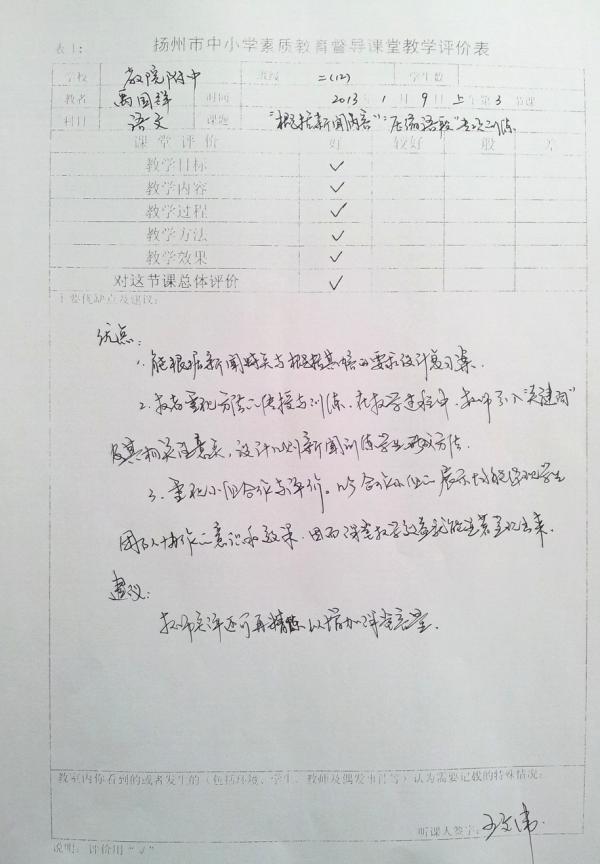 表1: 扬州市中小学素质教育督导课堂教学评价表
学校 教院附中 班级 二(12) 学生数
教者 禹国祥 时间 2013年1月9日上午第3节课
科目 语文 课题 "根据新闻内容""压缩语段"专项训练
课堂评价 好 较好 一般 差
教学目标 ✓
教学内容 ✓
教学过程 ✓
教学方法 ✓
教学效果 ✓
对这节课总体评价 ✓
主要优缺点及建议:
优点:
1. 能根据新闻 的要求设计复习案.
2. 教者重视方法的传授与训练. 在教学过程中, 教师引入"关键词"
及其相关注意点, 设计 新闻训练学生 方法.
3. 重视小组合作与评价. 以合作小组的展示 学生
团队协作的意识和效果, 因而课堂教学效益就能显著呈现出来.
建议:
教师 还可再精炼以增加课堂容量.
教室内你看到的或者发生的(包括环境、学生、教师及偶发事件等)认为需要记载的特殊情况:
听课人签字: 王 伟
说明: 评价用"✓"